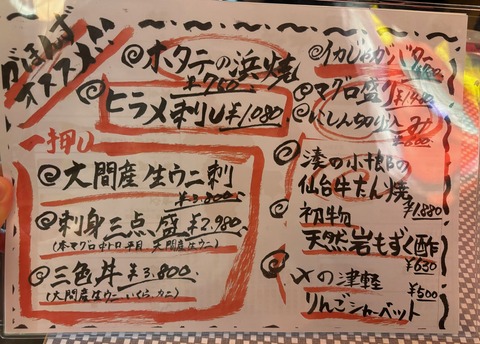 がほんず
オススメ!!
ホタテの浜焼
¥760
ヒラメ刺し¥1,080
一押し
大間産生ウニ刺
¥3,800
刺身三点盛¥2,980
(本マグロ中トロ 平目 大間産生ウニ)
三色丼 ¥3,800
(大間産生ウニ いくら、カニ)
イカじゃがバター
マグロ盛り¥1,480
にしん切り込み
¥600
湊の小根の
仙台牛たん焼
¥1,880
初物
天然岩もずく酢
¥650
〆の津軽
¥500
りんごシャーベット